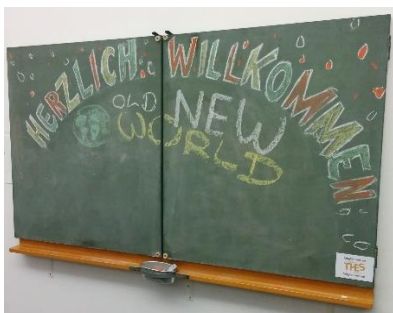 HERZLICH WILLKOMMEN
OLD NEW
WORLD
THES